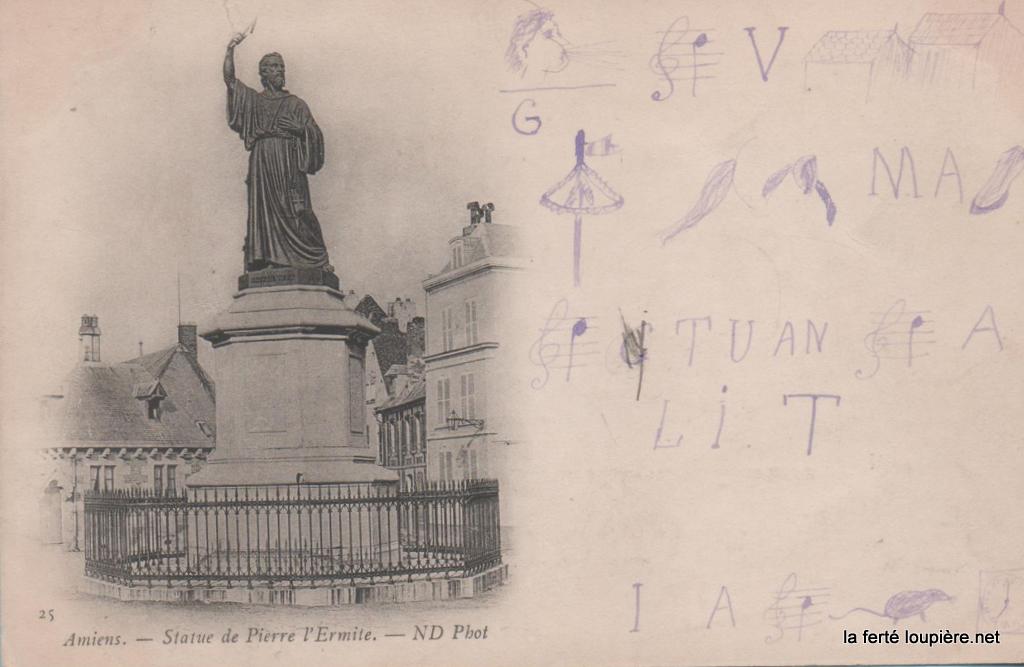 V
G
MA
TUAN A
Li.T
I A
25
Amiens. — Statue de Pierre l'Ermite. — ND Phot
la ferté loupière.net